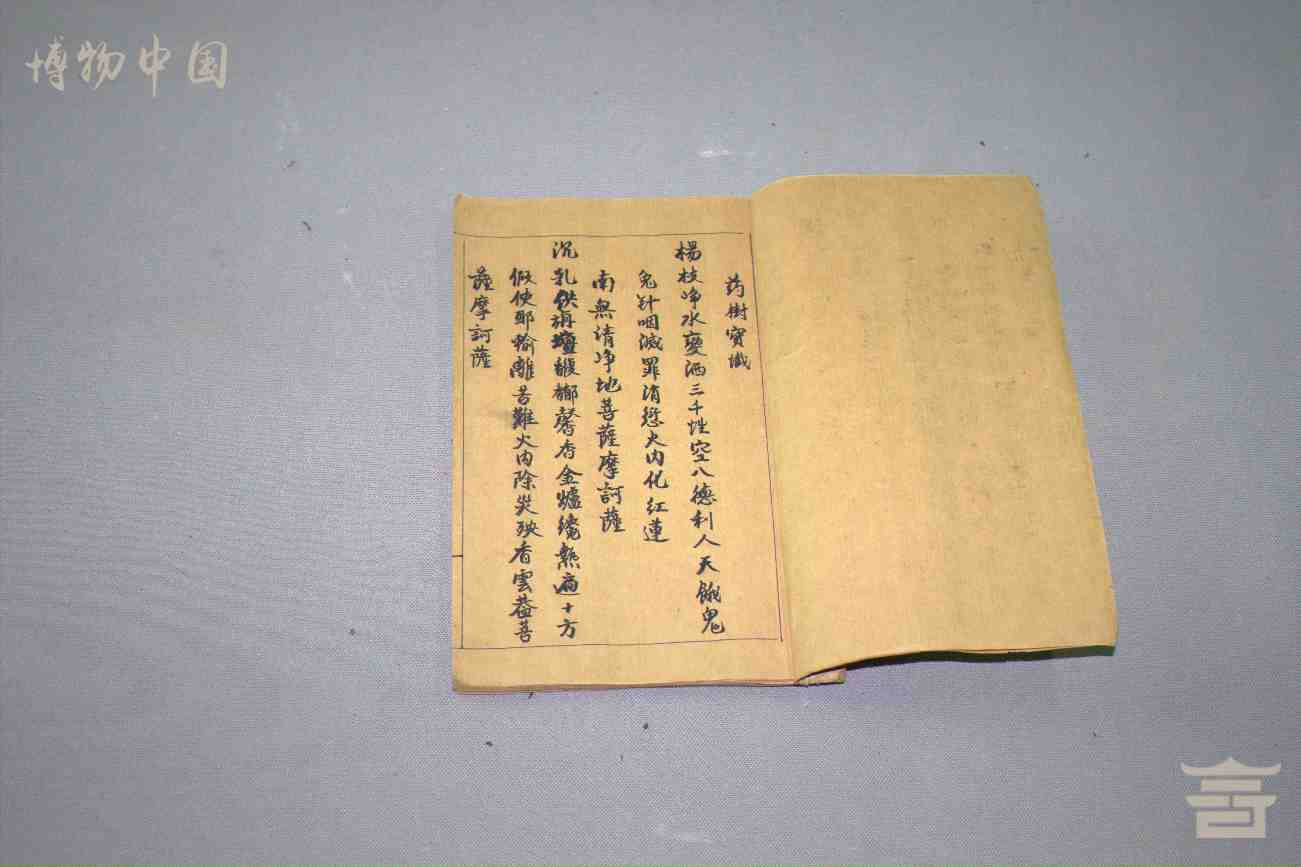 博物中国
药树宝忏
楊枝净水變洒三千性空八德利人天餓鬼
免針咽滅罪消愆火内化红蓮
南無清净地菩薩摩訶薩
沉乳供旃壇馥郁馨香金爐纔熱遍十方
假使耶輸離苦難火内除災殃香雲蓋菩
薩摩訶薩